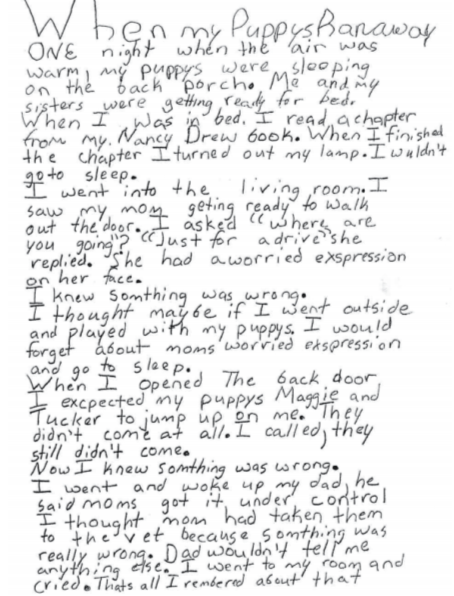 When my Puppys Ranaway
ONE night when the air was
warm, my puppys were sleeping
on the back porch. Me and my
sisters were getting ready for bed.
When I was in bed. I read a chapter
from my. Nancy Drew book. When I finished
the chapter I turned out my lamp. I wuldn't
go to sleep.
I went into the living room. I
saw my mom geting ready to walk
out the door. I asked "where are
you going"? "Just for a drive" she
replied. She had a worried exspression
on her face.
I knew somthing was wrong.
I thought maybe if I went outside
and played with my puppys. I would
forget about moms worried exspression
and go to sleep.
When I opened The back door,
I excpected my puppys Maggie and
Tucker to jump up on me. They
didn't come at all. I called, they
still didn't come.
Now I knew somthing was wrong.
I went and woke up my dad, he
said moms got it under control
I thought mom had taken them
to the vet because somthing was
really wrong. Dad wouldn't tell me
anything else. I went to my room and
cried. Thats all I rembered about that